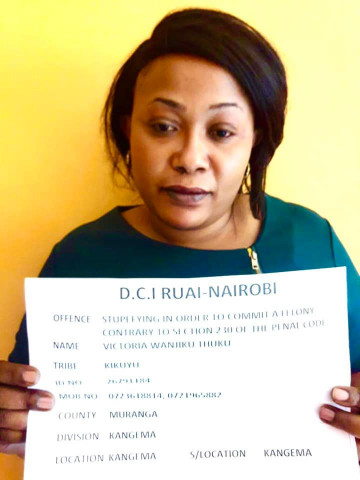 D.C.I RUAI-NAIROBI
OFFENCE STUPEFYING IN ORDER TO COMMIT A FELONY
CONTRARY TO SECTION 230 OF THE PENAL CODE
NAME VICTORIA WANJIKU THUKU
TRIBE KIKUYU
ID NO 26791184
MOB NO 0723618814, 0721965882
COUNTY MURANGA
DIVISION KANGEMA
LOCATION KANGEMA S/LOCATION KANGEMA